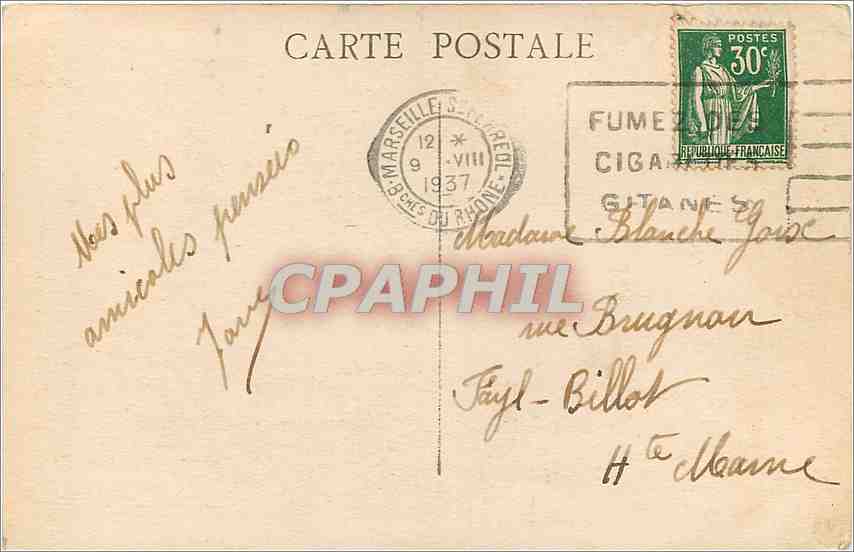 CARTE POSTALE
POSTES
30c
REPUBLIQUE-FRANÇAISE
MARSEILLE St FERREOL
12 *
9 -VIII
1937
Bches DU RHONE
FUMEZ DES
CIGARETTES
GITANES
Nos plus
amicales pensées
CPAPHIL
Madame Blanche
rue
Fayl-Billot
Hte Marne